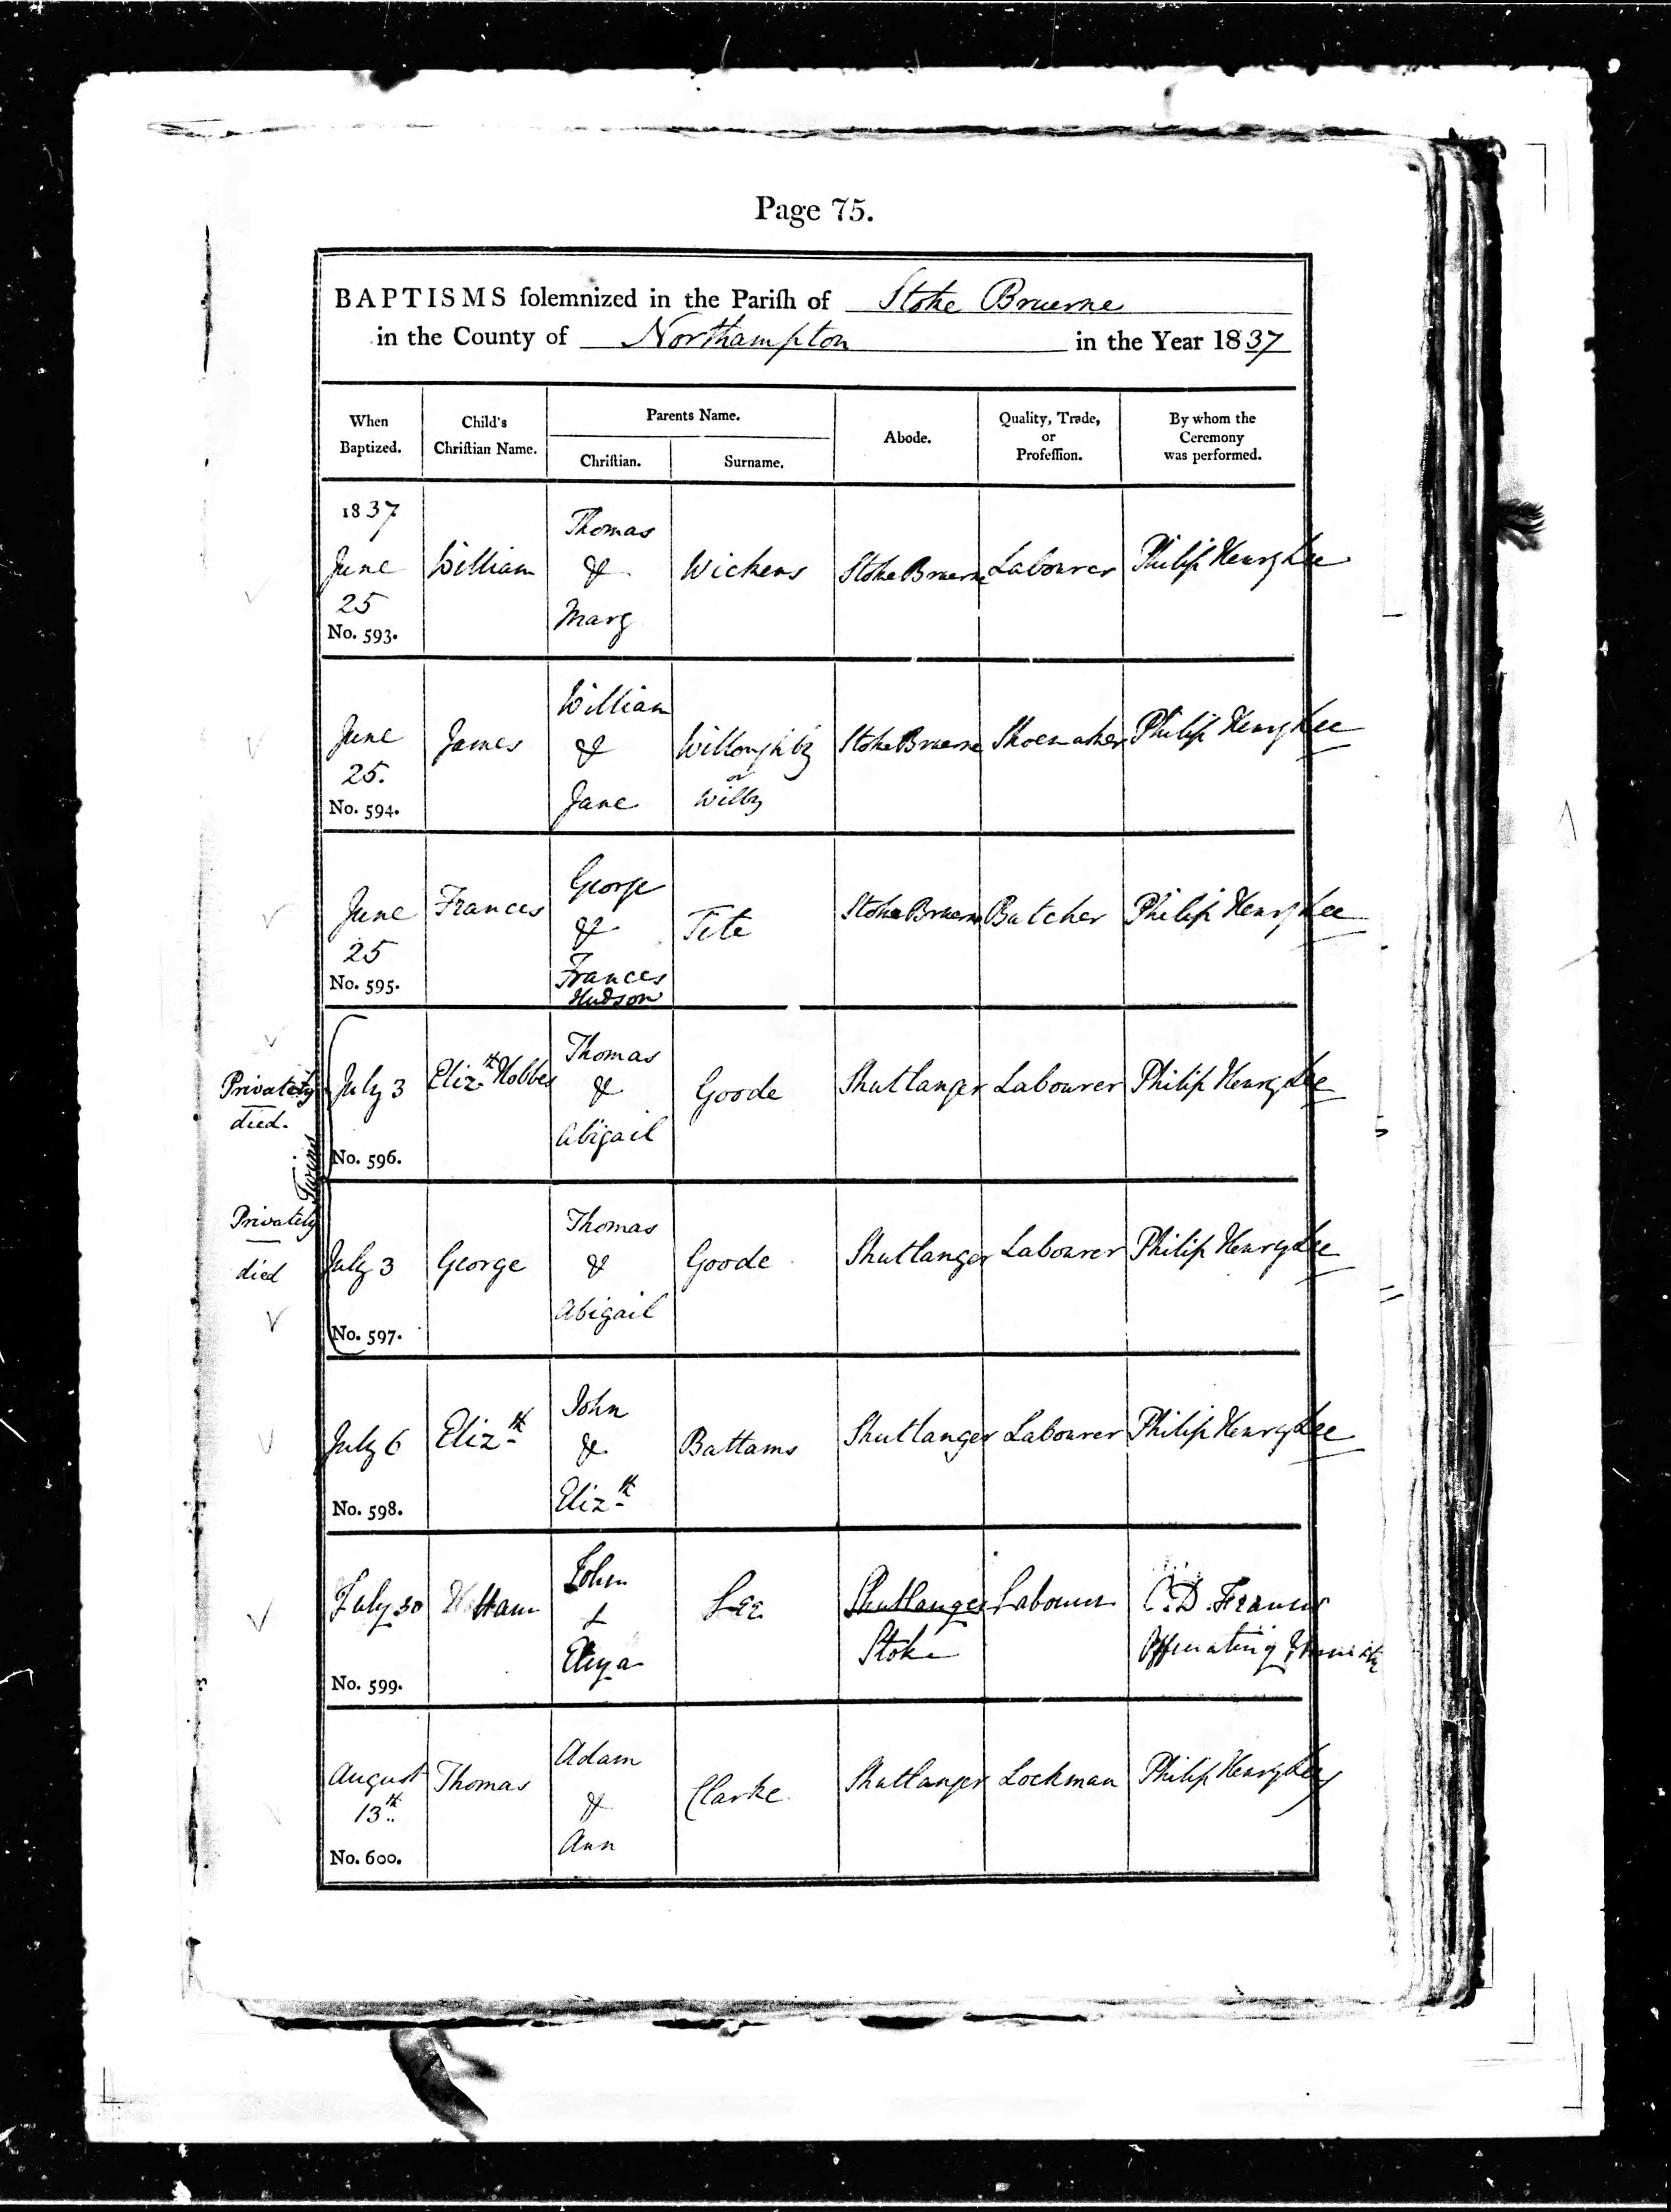 Page 75.
BAPTISMS ſolemnized in the Pariſh of Stoke Bruerne
in the County of Northampton in the Year 1837
When Baptized.
Child's Chriſtian Name.
Parents Name.
Chriſtian.
Surname.
Abode.
Quality, Trade, or Profeſſion.
By whom the Ceremony was performed.
1837
June 25
No. 593.
William
Thomas
&
Mary
Wickens
Stoke Bruerne
Labourer
Philip Henry Lee
June 25.
No. 594.
James
William
&
Jane
Willoughby
or
Wilby
Stoke Bruerne
Shoemaker
Philip Henry Lee
June 25
No. 595.
Frances
George
&
Frances
Hudson
Tite
Stoke Bruerne
Butcher
Philip Henry Lee
Privately
died.
Twins
July 3
No. 596.
Elizth Hobbes
Thomas
&
Abigail
Goode
Shutlanger
Labourer
Philip Henry Lee
Privately
died
July 3
No. 597.
George
Thomas
&
Abigail
Goode
Shutlanger
Labourer
Philip Henry Lee
July 6
No. 598.
Elizth
John
&
Elizth
Battams
Shutlanger
Labourer
Philip Henry Lee
July 30
No. 599.
John
&
Eliza
Lee
Shutlanger
Stoke
Labourer
C. D. Francis
Officiating
August 13th
No. 600.
Thomas
Adam
&
Ann
Clarke
Shutlanger
Lockman
Philip Henry Lee